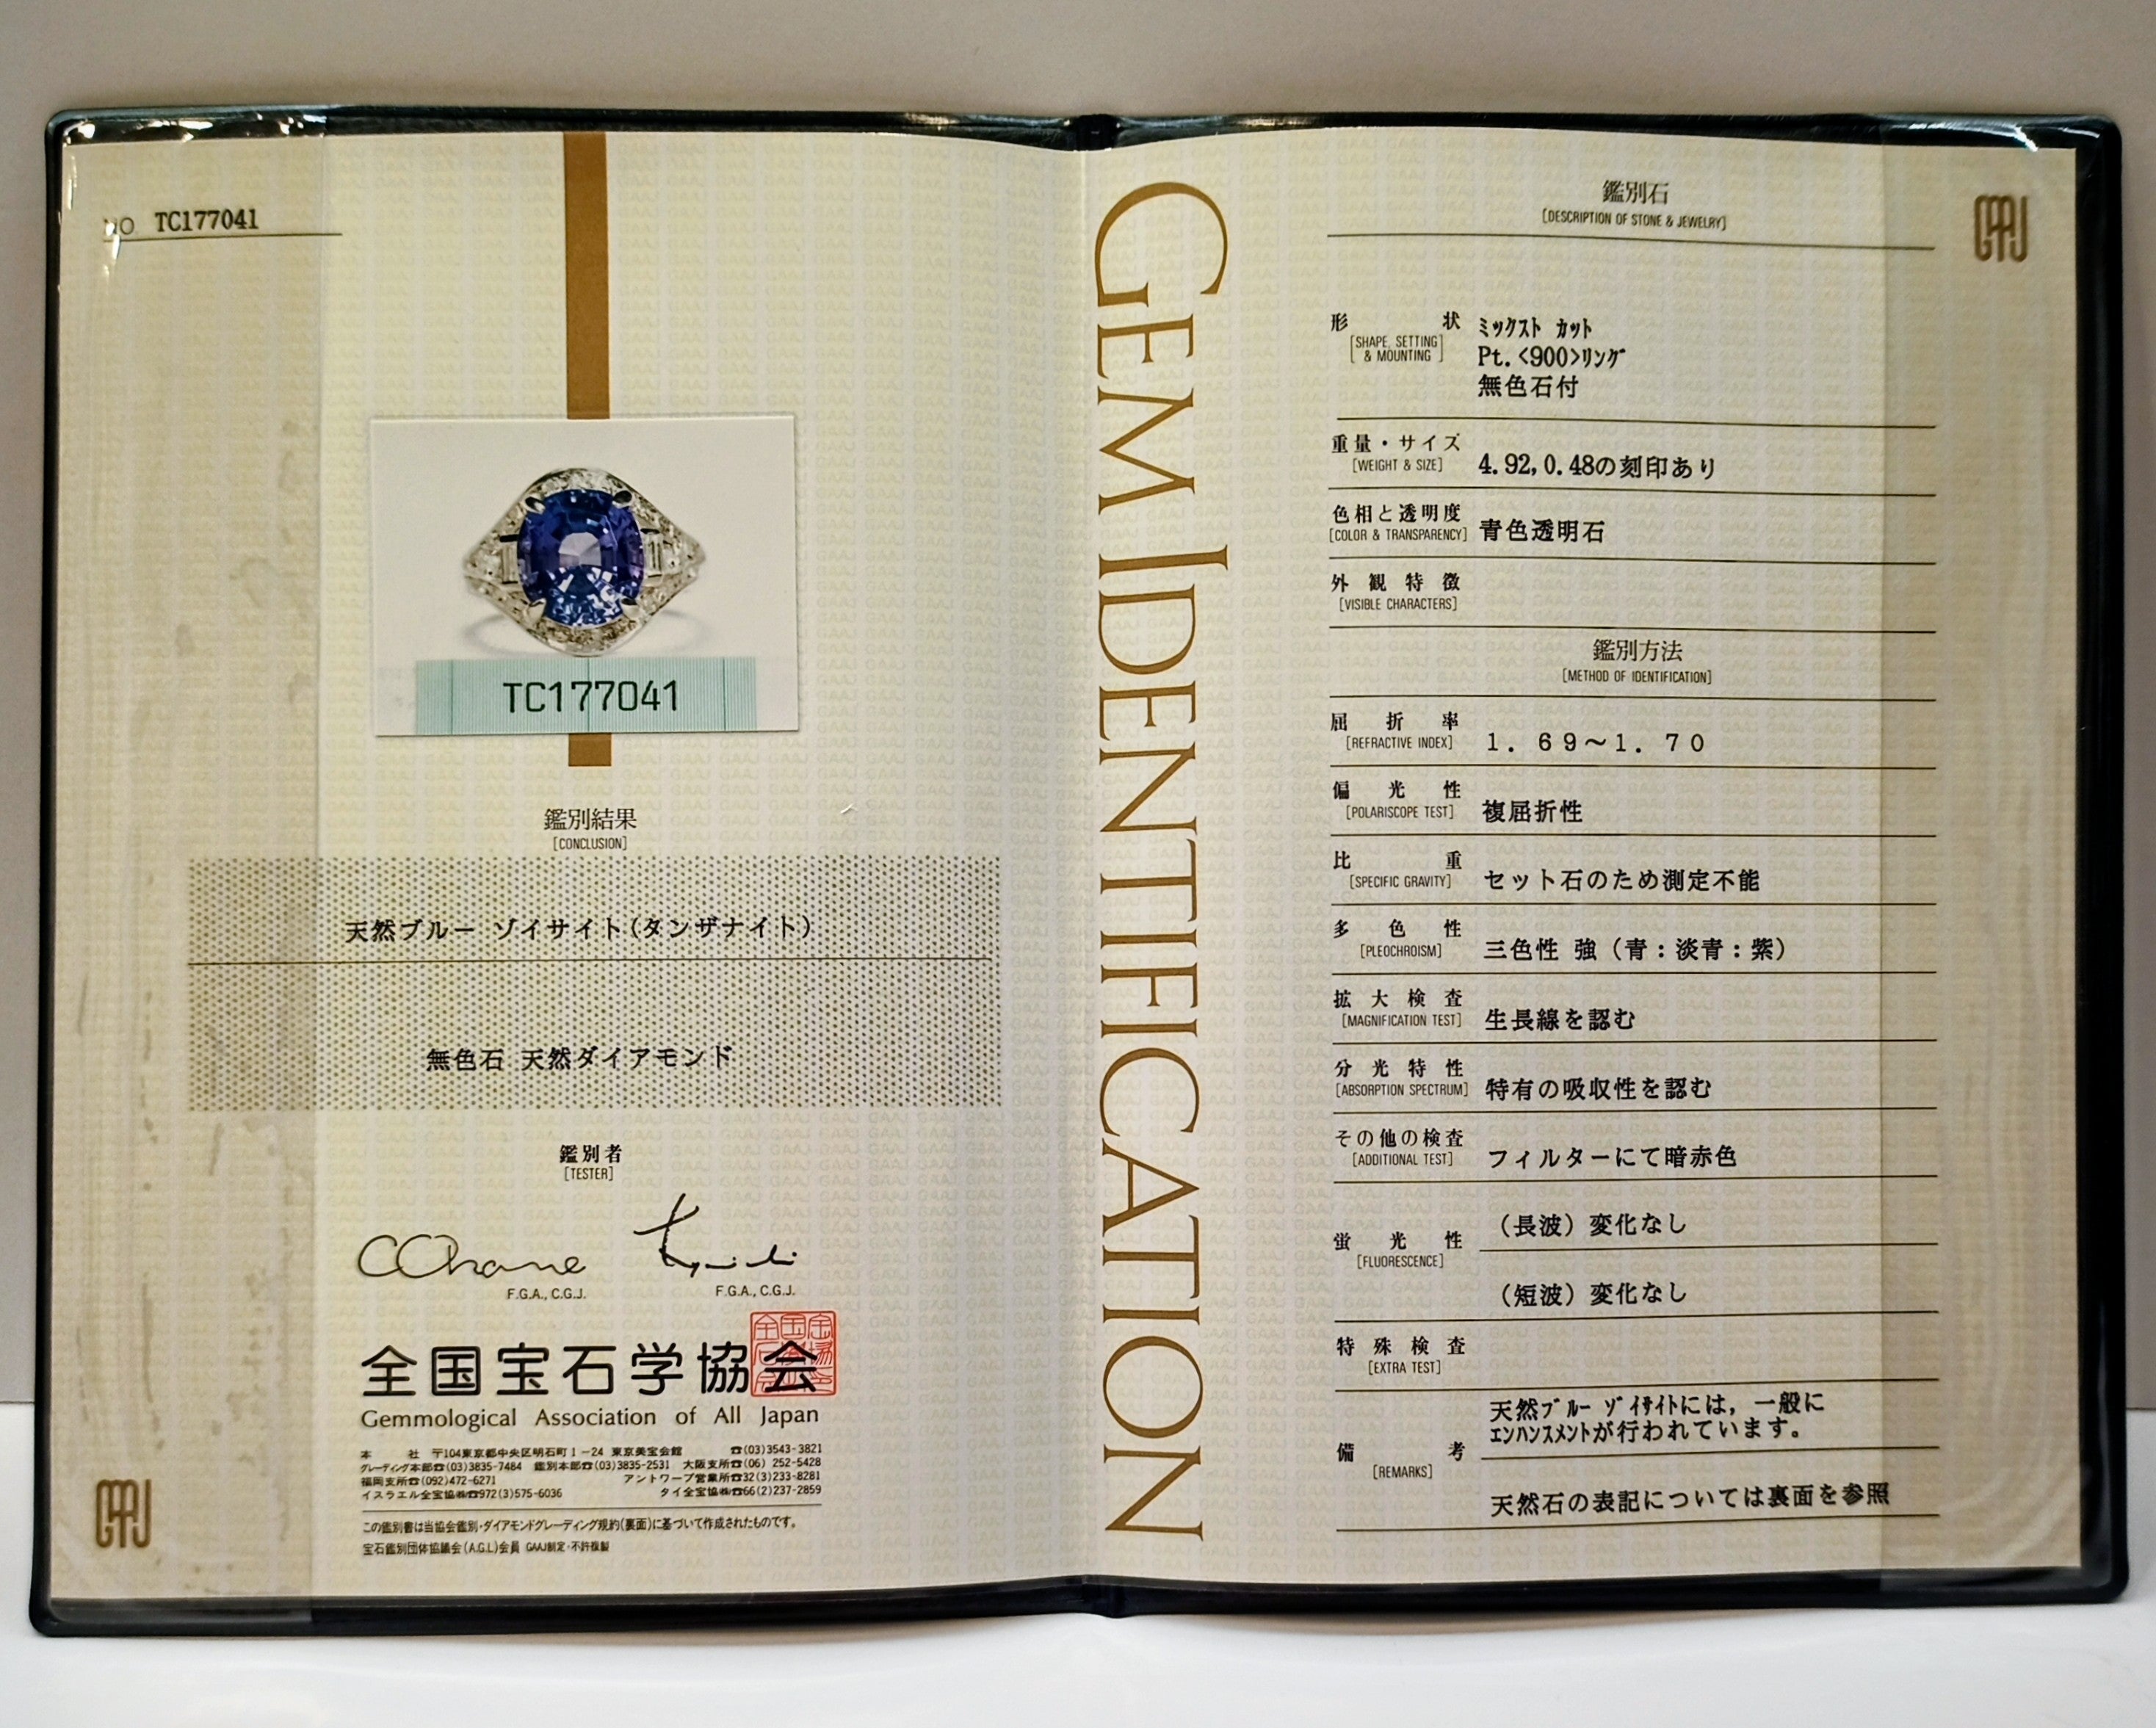 NO TC177041
TC177041
鑑別結果
[CONCLUSION]
天然ブルー ゾイサイト(タンザナイト)
無色石 天然ダイアモンド
鑑別者
[TESTER]
F.G.A., C.G.J.
F.G.A., C.G.J.
全国宝石学協会
Gemmological Association of All Japan
本 社 〒104東京都中央区明石町1-24 東京美宝会館 ☎(03)3543-3821
グレーディング本部☎(03)3835-7484 鑑別本部☎(03)3835-2531 大阪支所☎(06) 252-5428
福岡支所☎(092)472-6271 アントワープ営業所☎32(3)233-8281
イスラエル全宝協㈱☎972(3)575-6036 タイ全宝協㈱☎66(2)237-2859
この鑑別書は当協会鑑別・ダイアモンドグレーディング規約(裏面)に基づいて作成されたものです。
宝石鑑別団体協議会(A.G.L)会員 GAAJ制定・不許複製
GAAJ
GEM IDENTIFICATION
GAAJ
鑑別石
[DESCRIPTION OF STONE & JEWELRY]
形 状 ミックスト カット
[SHAPE, SETTING & MOUNTING] Pt.<900>リング
無色石付
重量・サイズ
[WEIGHT & SIZE] 4.92,0.48の刻印あり
色相と透明度
[COLOR & TRANSPARENCY] 青色透明石
外観特徴
[VISIBLE CHARACTERS]
鑑別方法
[METHOD OF IDENTIFICATION]
屈折率
[REFRACTIVE INDEX] 1.69~1.70
偏光性
[POLARISCOPE TEST] 複屈折性
比重
[SPECIFIC GRAVITY] セット石のため測定不能
多色性
[PLEOCHROISM] 三色性 強(青:淡青:紫)
拡大検査
[MAGNIFICATION TEST] 生長線を認む
分光特性
[ABSORPTION SPECTRUM] 特有の吸収性を認む
その他の検査
[ADDITIONAL TEST] フィルターにて暗赤色
蛍光性
[FLUORESCENCE]
(長波)変化なし
(短波)変化なし
特殊検査
[EXTRA TEST]
備考
[REMARKS]
天然ブルー ゾイサイトには,一般に
エンハンスメントが行われています。
天然石の表記については裏面を参照